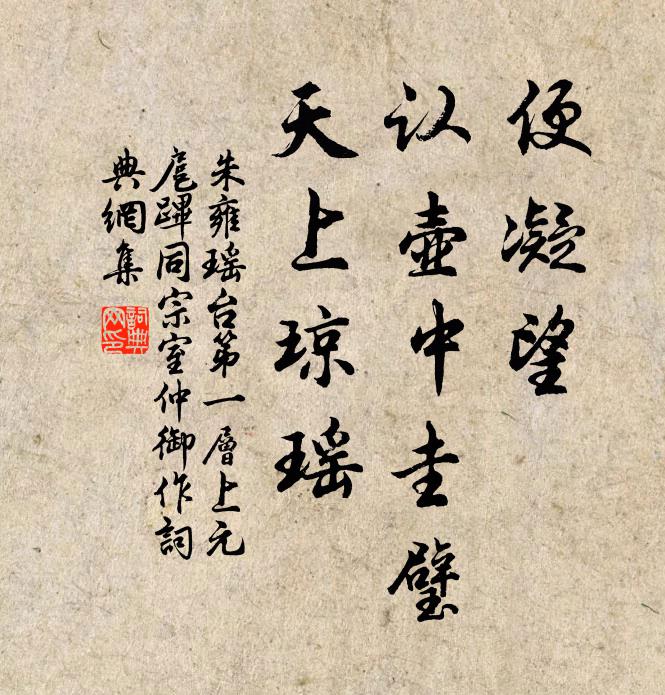 便凝望
认壶中圭璧
天上琼瑶
朱雍瑶台第一層上元
扈蹕同宗室仲御作詞
典網集
詞典
网印